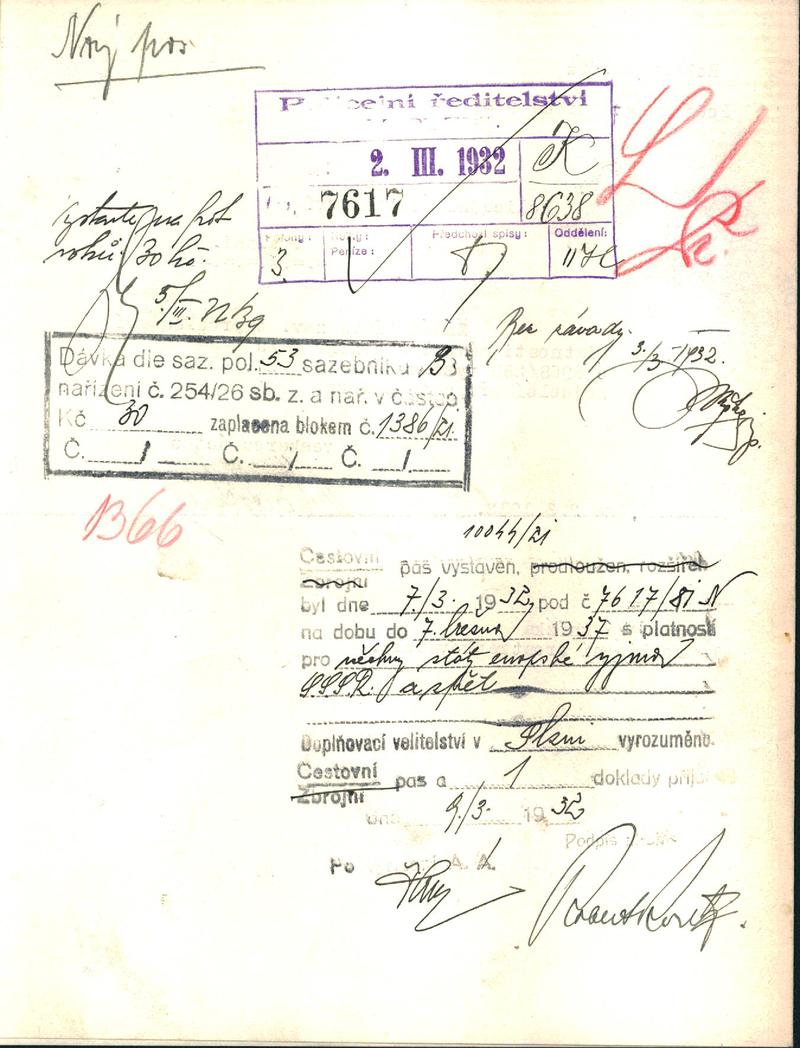 Nový pas.
Policejní ředitelství
2. III. 1932
K
7617
8638
Předchozí spisy:
Oddělení:
Peníze:
3
na pět
roků 30 Kč.
5/III.
Bez závady.
3./3. 1932.
Dávka dle saz. pol. 53 sazebníku B
nařízení č. 254/26 sb. z. a nař. v částce
Kč 30 zaplacena blokem č. 1386/21.
Č. / Č. / Č. /.
1366
10044/21
Cestovní pas vystaven, prodloužen, rozšířen
Zbrojní
byl dne 7./3. 1932 pod č 7617/81 N
na dobu do 7. března 1937 s platností
pro všechny státy evropské vyjma
S.S.S.R. a zpět
Doplňovací velitelství v Plzni vyrozuměno.
Cestovní pas a 1 doklady přija
Zbrojní
dne 9./3. 1932
Podpis